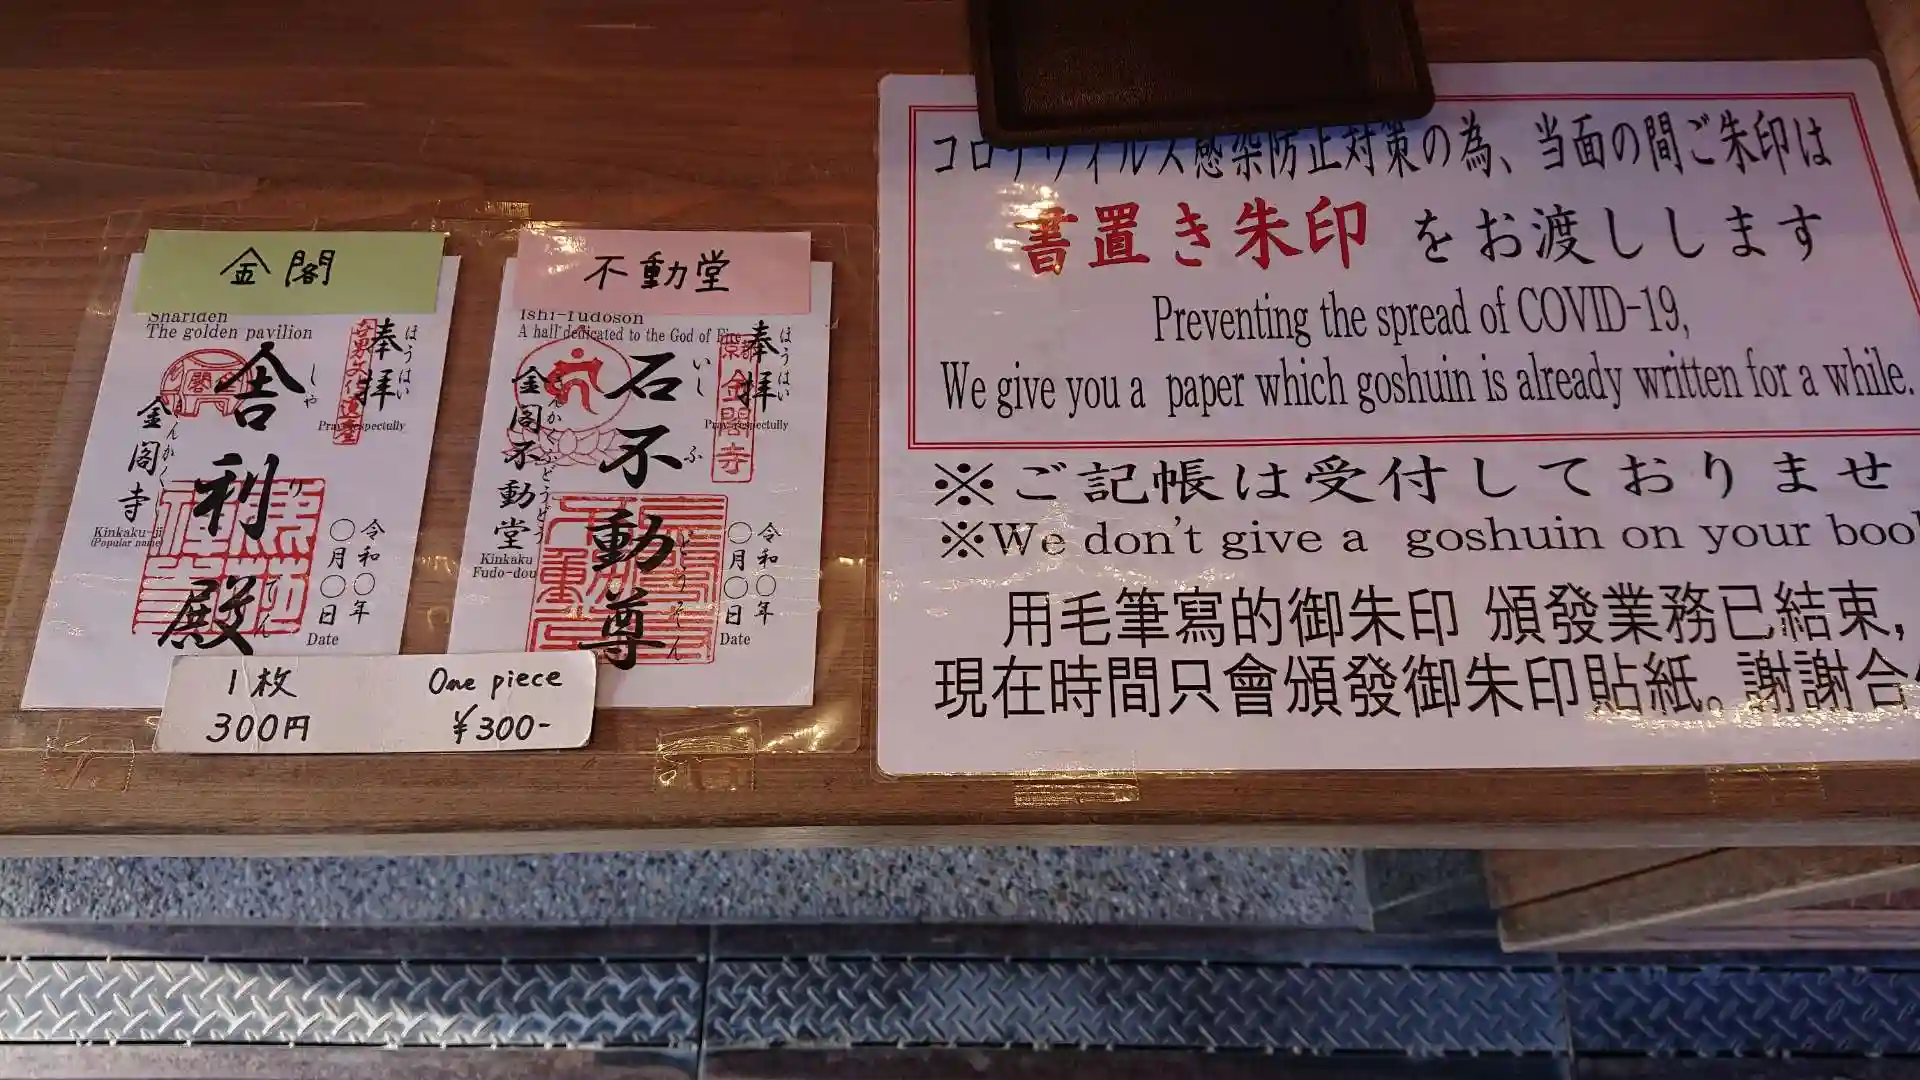 金閣
Shariden
The golden pavilion
奉拝
ほうはい
Pray respectully
舎利殿
しゃ
り
でん
金閣寺
きんかく
Kinkaku-ji
(Popular name)
令和〇年
〇月〇日
Date
不動堂
Ishi-Fudoson
A hall dedicated to the God of Fire
奉拝
ほうはい
Pray respectully
京都
金閣寺
石不動尊
いし
ふ
どうそん
金閣不動堂
きんかくふどうどう
Kinkaku
Fudo-dou
令和〇年
〇月〇日
Date
1枚 One piece
300円 ¥300-
コロナウィルス感染防止対策の為、当面の間ご朱印は
書置き朱印 をお渡しします
Preventing the spread of COVID-19,
We give you a paper which goshuin is already written for a while.
※ご記帳は受付しておりませ
※We don't give a goshuin on your boo
用毛筆寫的御朱印 頒發業務已結束,
現在時間只會頒發御朱印貼紙。謝謝合